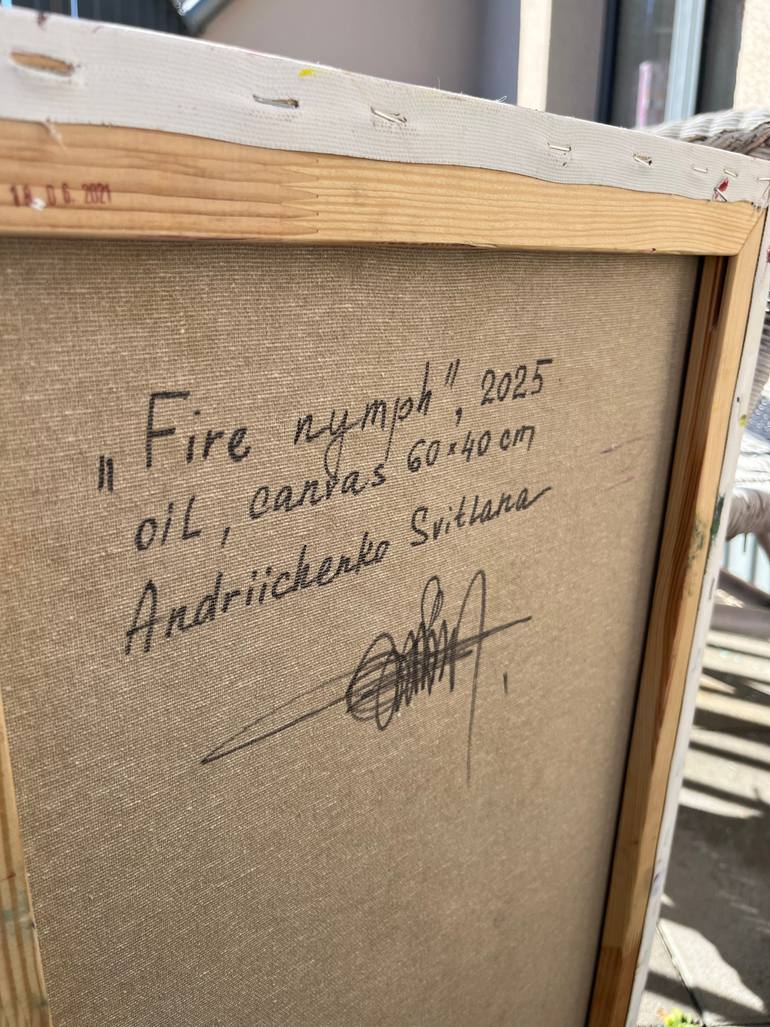 18.06.2021
„Fire nymph", 2025
oil, canvas 60×40 cm
Andriichenko Svitlana